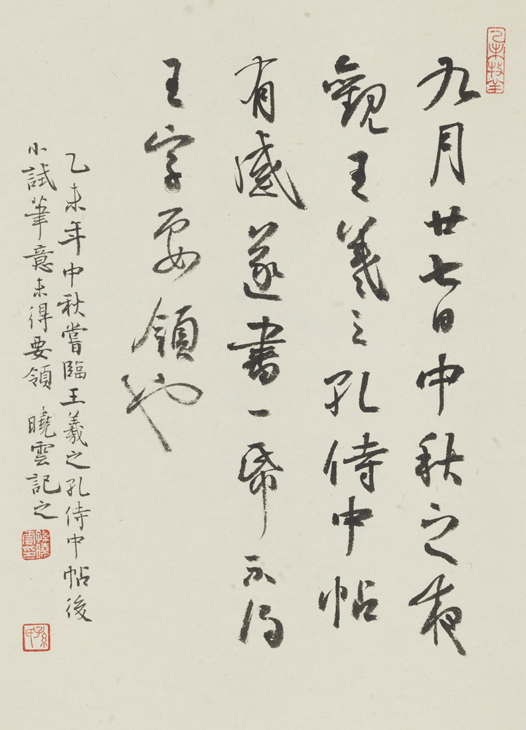 九月廿七日中秋之夜
觀王羲之孔侍中帖
有感遂書一帋不得
王字要領也
乙未年中秋嘗臨王羲之孔侍中帖後
小試筆意未得要領 曉雲記之